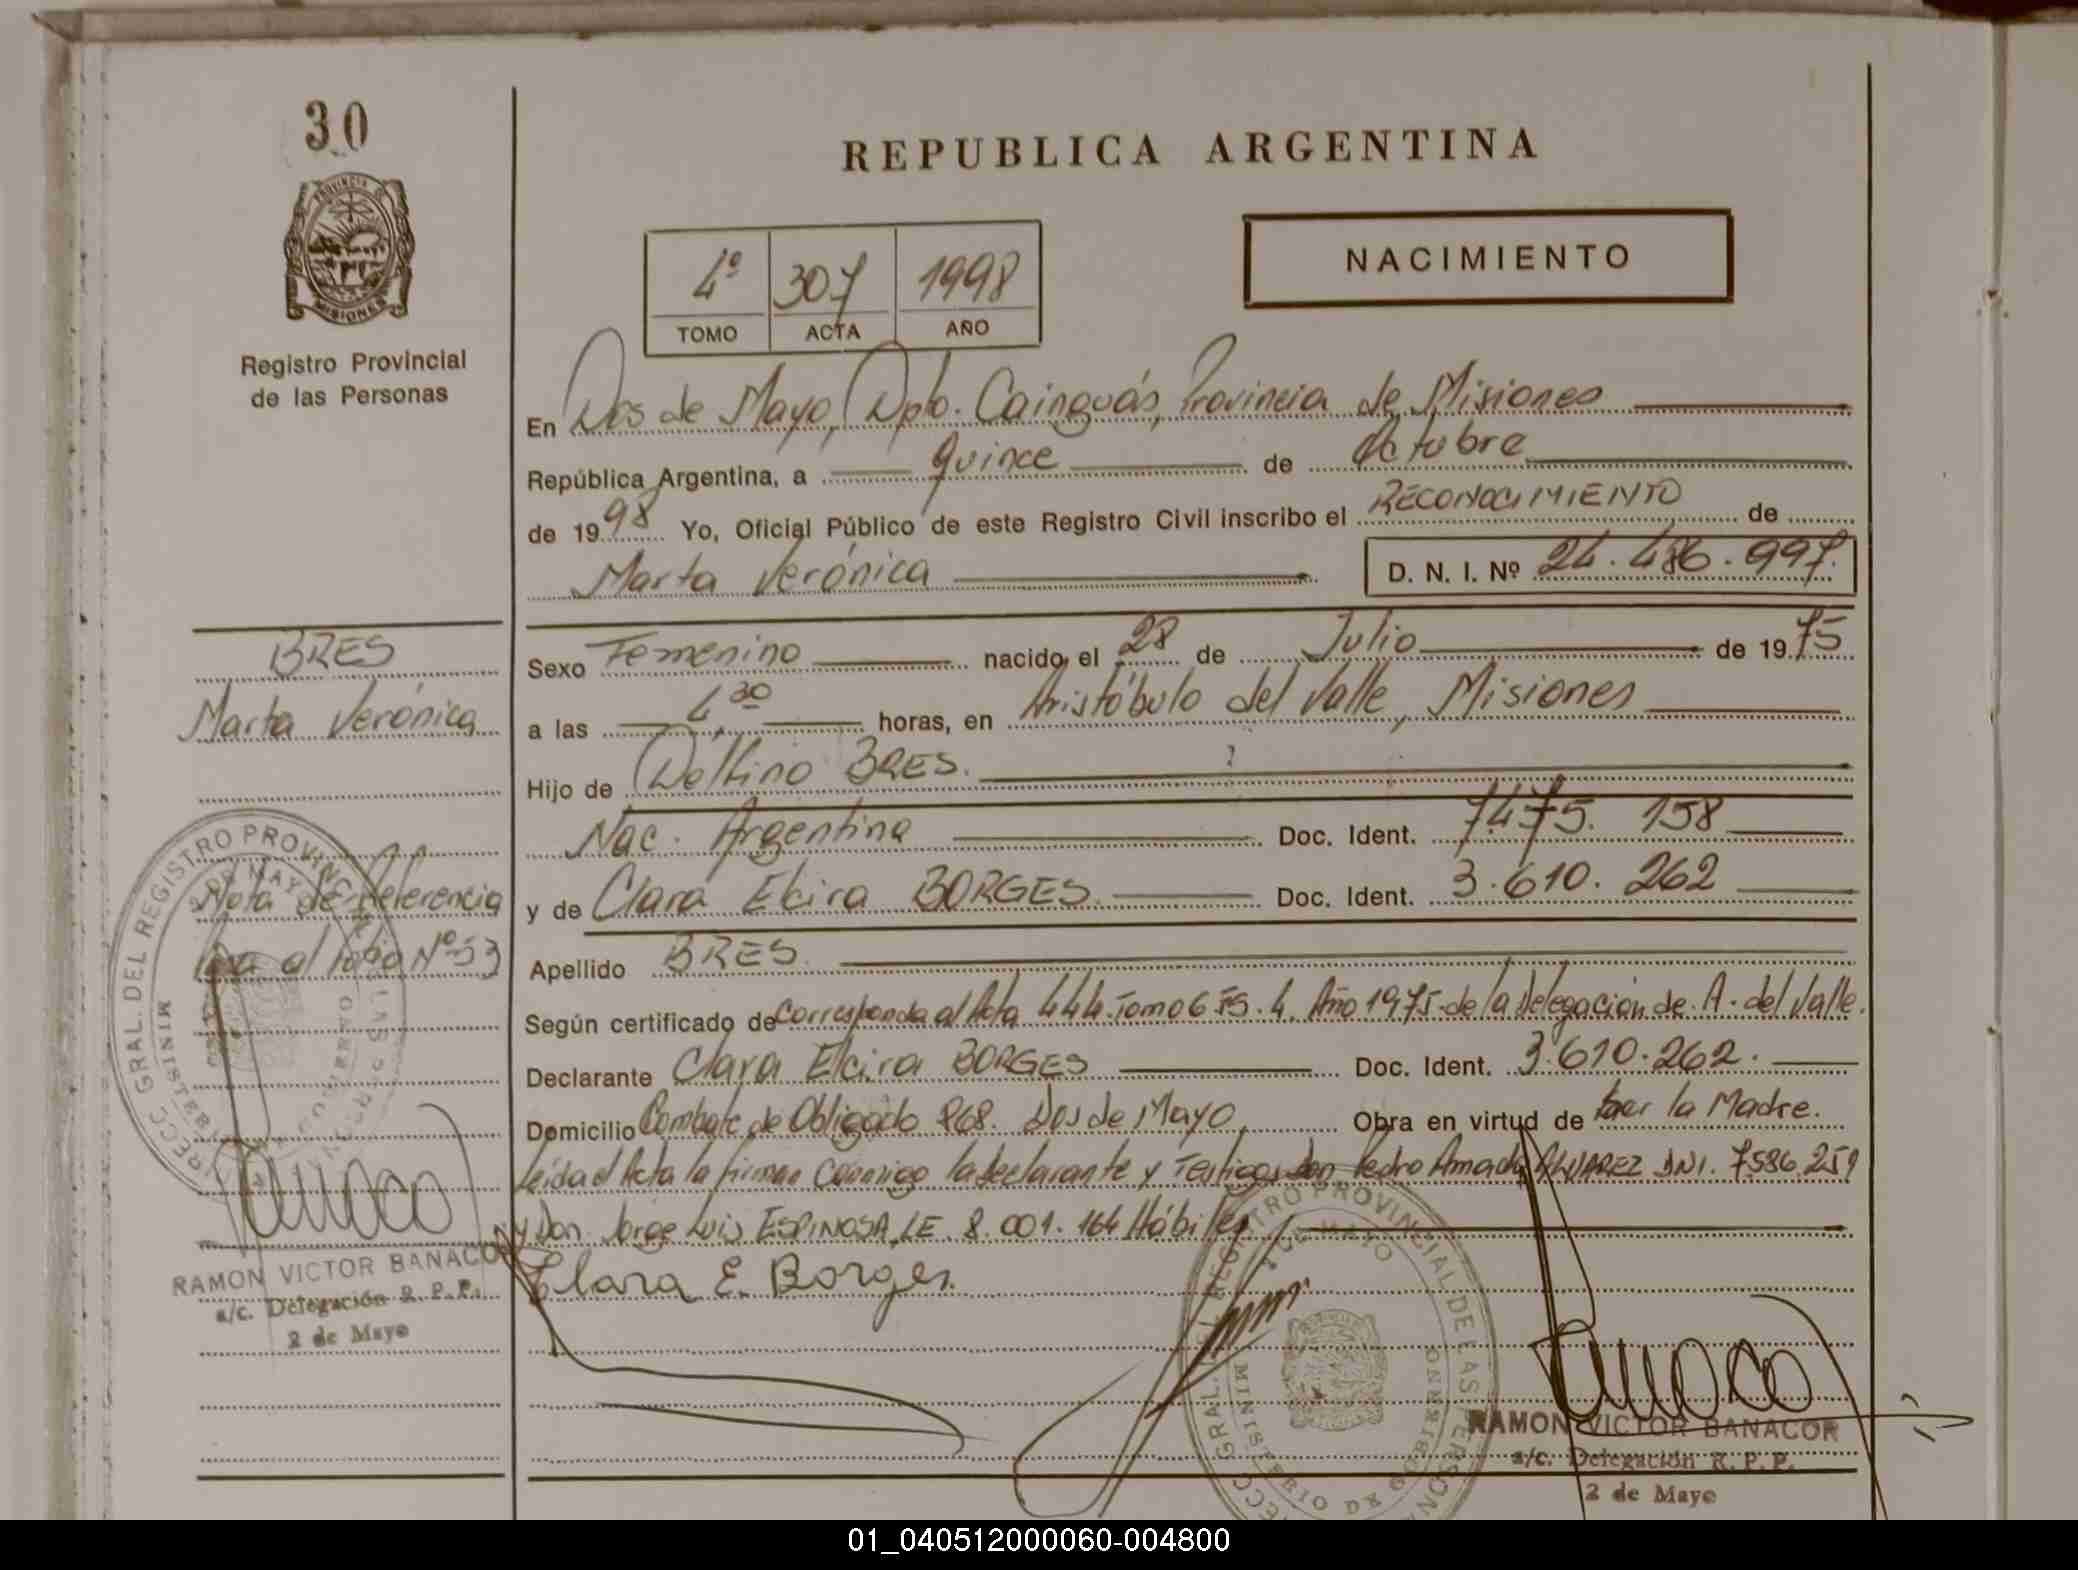 30
REPUBLICA ARGENTINA
PROVINCIA DE
MISIONES
Registro Provincial
de las Personas
4º 307 1998
TOMO ACTA AÑO
NACIMIENTO
En Dos de Mayo, Dpto. Cainguás, Provincia de Misiones
República Argentina, a quince de Octubre
de 1998 Yo, Oficial Público de este Registro Civil inscribo el RECONOCIMIENTO de
Marta Verónica D. N. I. Nº 24.486.997.
Sexo Femenino nacido el 28 de Julio de 1975
a las 4,30 horas, en Aristóbulo del Valle, Misiones
Hijo de Delfino BRES.
Nac. Argentina Doc. Ident. 7.475.158
y de Clara Elcira BORGES. Doc. Ident. 3.610.262
Apellido BRES.
Según certificado de corresponda al Acta 444 Tomo 6 Año 1975 de la Delegación de A. del Valle.
Declarante Clara Elcira BORGES Doc. Ident. 3.610.262.
Domicilio Combate de Obligado 868. Dos de Mayo Obra en virtud de ser la Madre.
Leída el Acta la firman conmigo la declarante y Testigos Don Pedro Amado ALVAREZ DNI. 7.586.259
y Don Jorge Luis ESPINOSA LE 8.001.164 Hábiles
Clara E. Borges.
BRES
Marta Verónica
Nota de Referencia
al folio Nº 53
RAMON VICTOR BANACOR
a/c. Delegación R. P. P.
2 de Mayo
RAMON VICTOR BANACOR
a/c. Delegación R. P. P.
2 de Mayo
01_040512000060-004800